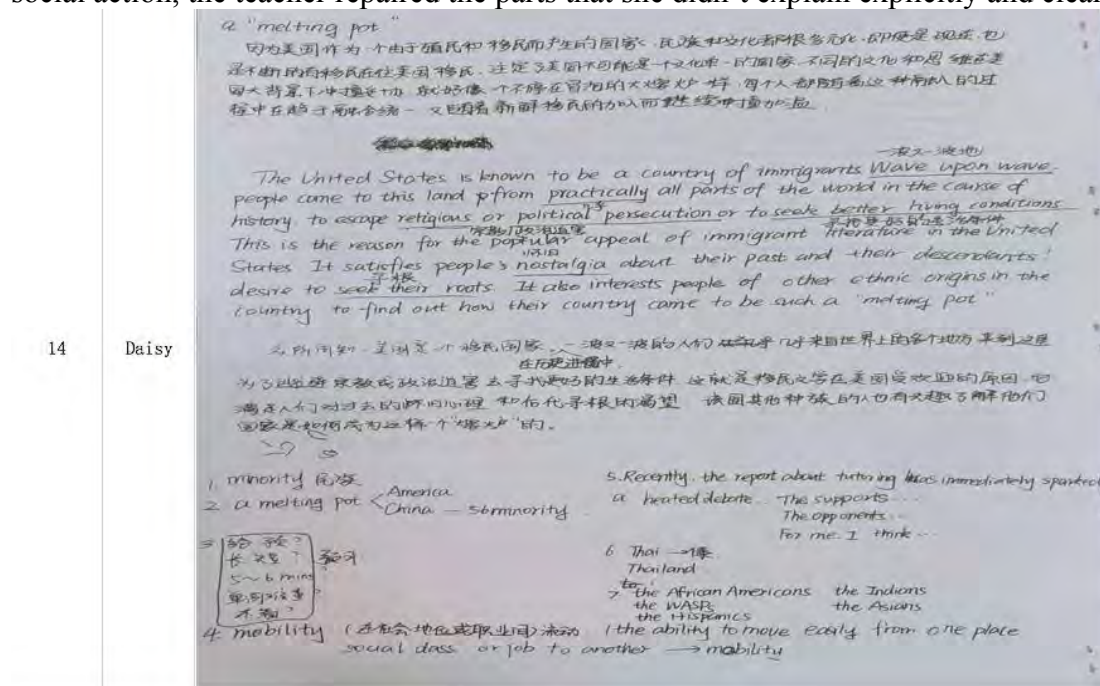 social action, the teacher repaired the parts that she didn't explain explicitly and clear
a "melting pot"
因为美国作为一个由于殖民和移民而产生的国家，民族和文化都很多元化，即使是现在，也
是不断的有移民在往美国移民，注定了美国不可能是一个文化单一的国家，不同的文化和思维在美
国大背景下冲撞，就好像一个不停在冒泡的大熔炉一样，每个人都随着这种 的过
程中在趋于 统一 又随着新鲜移民的加入而继续冲撞加温
一波又一波地
The United States is known to be a country of immigrants Wave upon wave
people came to this land from practically all parts of the world in the course of
history to escape religious or political persecution or to seek better living conditions
宗教/政治迫害 寻找更好的生活条件
This is the reason for the popular appeal of immigrant literature in the United
怀旧
States It satisfies people's nostalgia about their past and their descendants'
寻根
desire to seek their roots It also interests people of other ethnic origins in the
country to find out how their country came to be such a "melting pot"
14 Daisy
众所周知，美国是一个移民国家，一波又一波的人们 几乎来自世界上的各个地方 来到这里
在历史进程中
为了逃避宗教或政治迫害去寻找更好的生活条件 这就是移民文学在美国受欢迎的原因，它
满足人们对过去的怀旧心理 和后代寻根的渴望 该国其他种族的人也有兴趣了解他们
国家是如何成为这样一个"熔炉"的。
1. minority 民族
2. a melting pot America
China — 56 minority
3
长
5~6 mins
4. mobility (在社会地位或职业间)流动 (the ability to move easily from one place
social class or job to another → mobility
5. Recently, the report about tutoring has immediately sparked
a heated debate... The supports...
The opponents...
For me. I think...
6 Thai → 傣
Thailand
7 the African Americans the Indians
the WASPs the Asians
the Hispanics